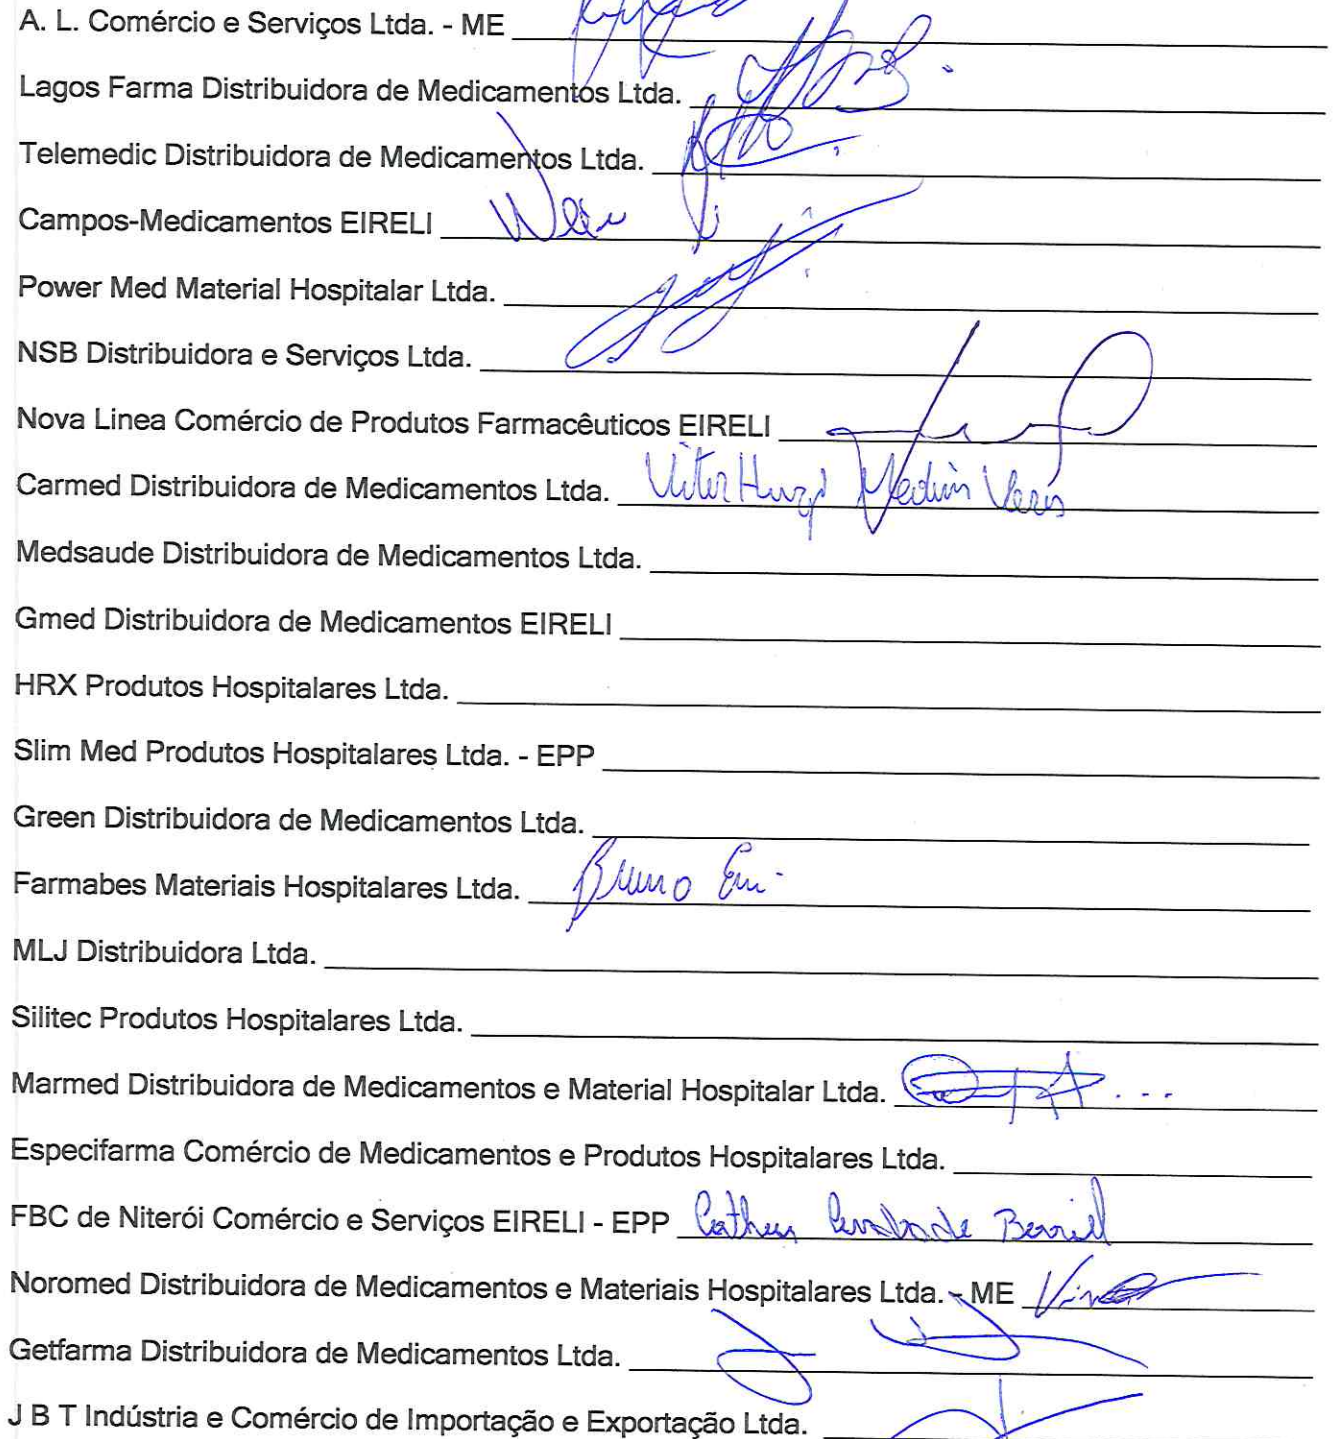 A. L. Comércio e Serviços Ltda. - ME
Lagos Farma Distribuidora de Medicamentos Ltda.
Telemedic Distribuidora de Medicamentos Ltda.
Campos-Medicamentos EIRELI
Power Med Material Hospitalar Ltda.
NSB Distribuidora e Serviços Ltda.
Nova Linea Comércio de Produtos Farmacêuticos EIRELI
Carmed Distribuidora de Medicamentos Ltda. Vitor Hugo
Medsaude Distribuidora de Medicamentos Ltda.
Gmed Distribuidora de Medicamentos EIRELI
HRX Produtos Hospitalares Ltda.
Slim Med Produtos Hospitalares Ltda. - EPP
Green Distribuidora de Medicamentos Ltda.
Farmabes Materiais Hospitalares Ltda. Bruno
MLJ Distribuidora Ltda.
Silitec Produtos Hospitalares Ltda.
Marmed Distribuidora de Medicamentos e Material Hospitalar Ltda.
Especifarma Comércio de Medicamentos e Produtos Hospitalares Ltda.
FBC de Niterói Comércio e Serviços EIRELI - EPP
Noromed Distribuidora de Medicamentos e Materiais Hospitalares Ltda. - ME
Getfarma Distribuidora de Medicamentos Ltda.
J B T Indústria e Comércio de Importação e Exportação Ltda.